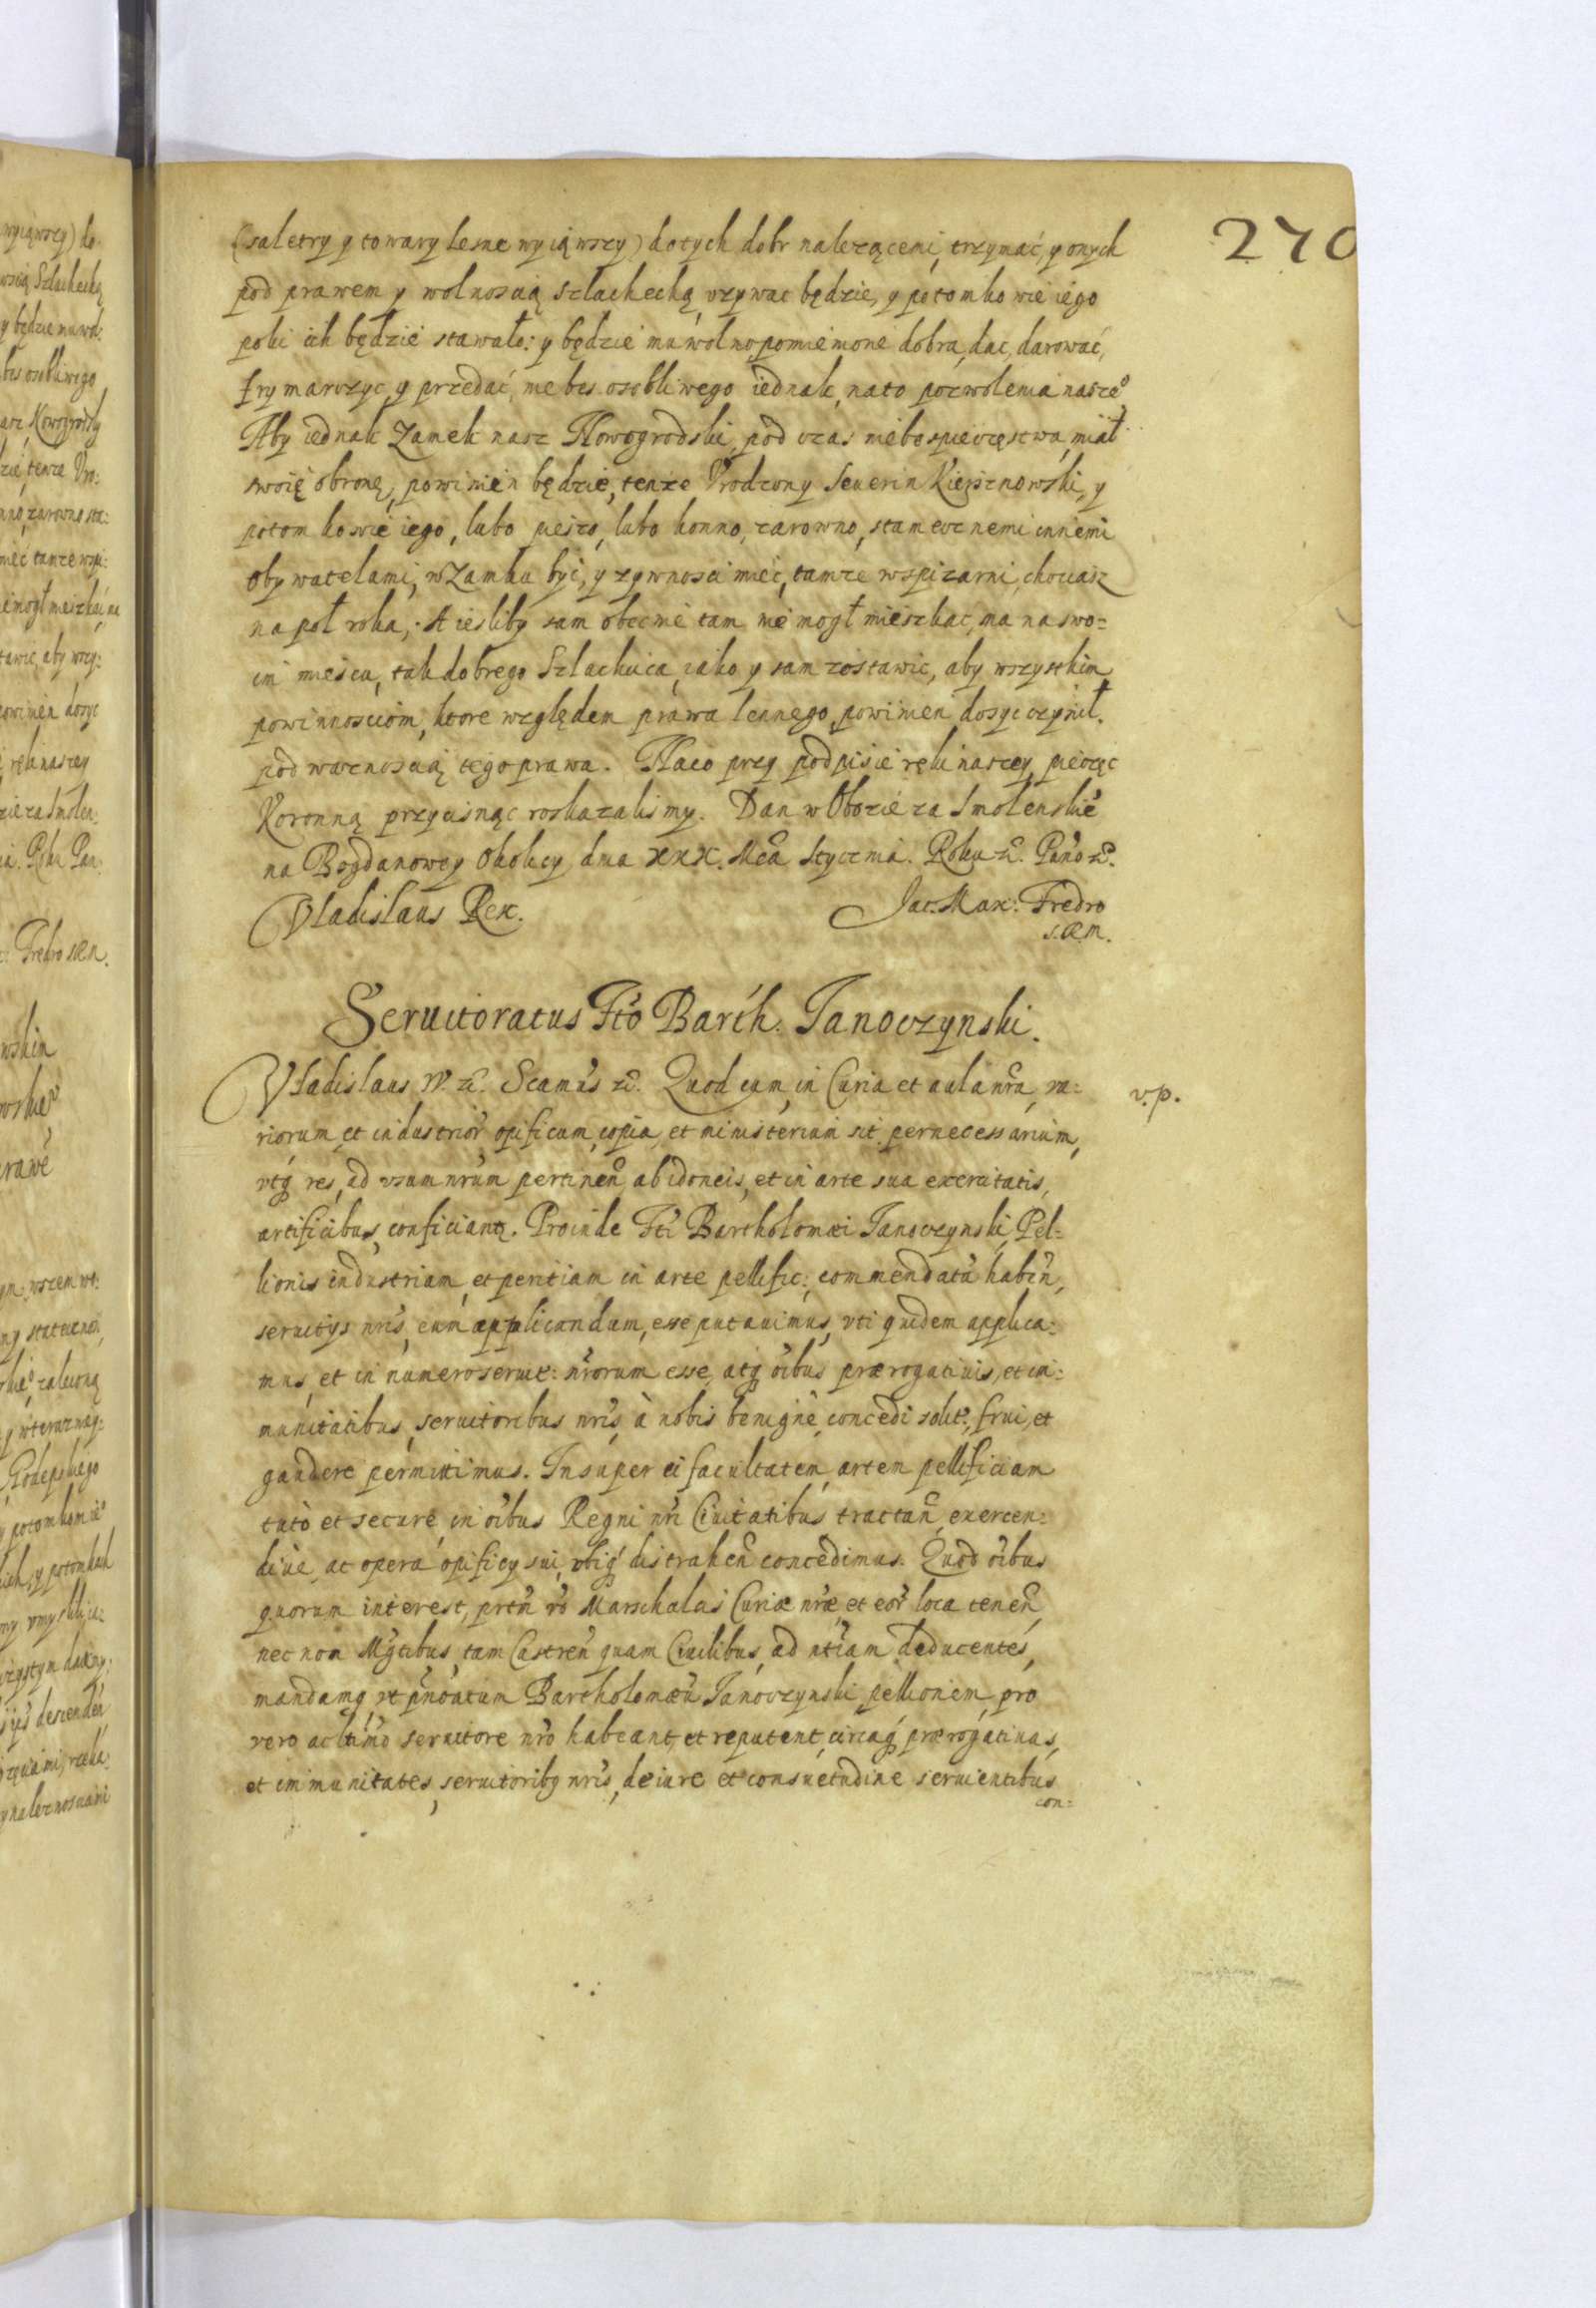 270
(saletry y towary lesne wyiąwszy) do tych dobr nalezącemi, trzymać, y onych
pod prawem y wolnoscią szlachecką vzywac będzie, y potomkowie iego
poki ich będzie stawało: y będzie mu wolno, pomienione dobra, dac, darować,
frymarczyc, y przedać, nie bes osobliwego iednak, na to pozwolenia nasze°
Aby iednak Zamek nasz Nowogrodski, pod czas niebespieczęstwa, miał
swoię obronę, powinien będzie, tenze Vrodzony Seuerin Kierznowski, y
potomkowie iego, lubo pieszo, lubo konno, zarowno, stamecznemi innemi
obywatelami, w Zamku być, y zywnosci mieć, tamze w spizarni, chociasz
na poł roku, A iesliby sam obecnie tam nie mogł mieszkac, ma na swo=
im mieiscu, tak dobrego Szlachcica, iako y sam zostawic, aby wszystkim
powinnosciom, ktore względem prawa lennego, powinien dosyc czynił.
pod waznoscią tego prawa. Na co przy podpisie ręki naszey, pieczęc
Koronną przycisnąc roskazalismy. Dan w Obozie za Smolenskiē
na Bogdanowey Okolicy dnia XXX. Mcā Stycznia. Roku &. Pańo &.
Vladislaus Rex.
Jac. Max: Fredro
S.R.M.
Seruitoratus Fto Barth: Janoczynski.
Vladislaus IV. &. Scamus &. Quod cum in Curia et aula nrā, va:
v.p.
riorum et industrior opificum copia, et ministerium sit pernecessarium,
vtq res, ad vsum nrūm pertineñ ab idoneis, et in arte sua exercitatis,
artificibus, conficiantr. Proinde Fti Bartholomæi Janoczynski, Pel=
lionis industriam, et peritiam in arte pellific: commendatā habeñ,
seruitys nris, eum applicandum, esse putauimus, vti quidem applica:
mus, et in numero seruit: nrorum esse, atq oībus prærogatiuis, et im:
munitatibus, seruitoribus nris, à nobis benigne, concedi solit: frui, et
gaudere permittimus. Insuper ei facultatem, artem pellificiam
tutò et secure, in oībus Regni nri Ciuitatibus tractañ, exercen:
diue, ac opera opificy sui, vbiq distraheñ concedimus. Quod oībus
quorum interest, prtñ vō Marschalcis Curiæ nræ, et eor loca teneñ,
nec non Mgtibus, tam Castreñ quam Ciuilibus, ad ntiam deducentes,
mandamq vt pnoatum Bartholomæū Janoczynski pellionem, pro
vero ac ltimo seruitore nro habeant, et reputent, circaq prærogatiuas,
et immunitates, seruitoribq nris, de iure et consuetudine seruientibus
con=